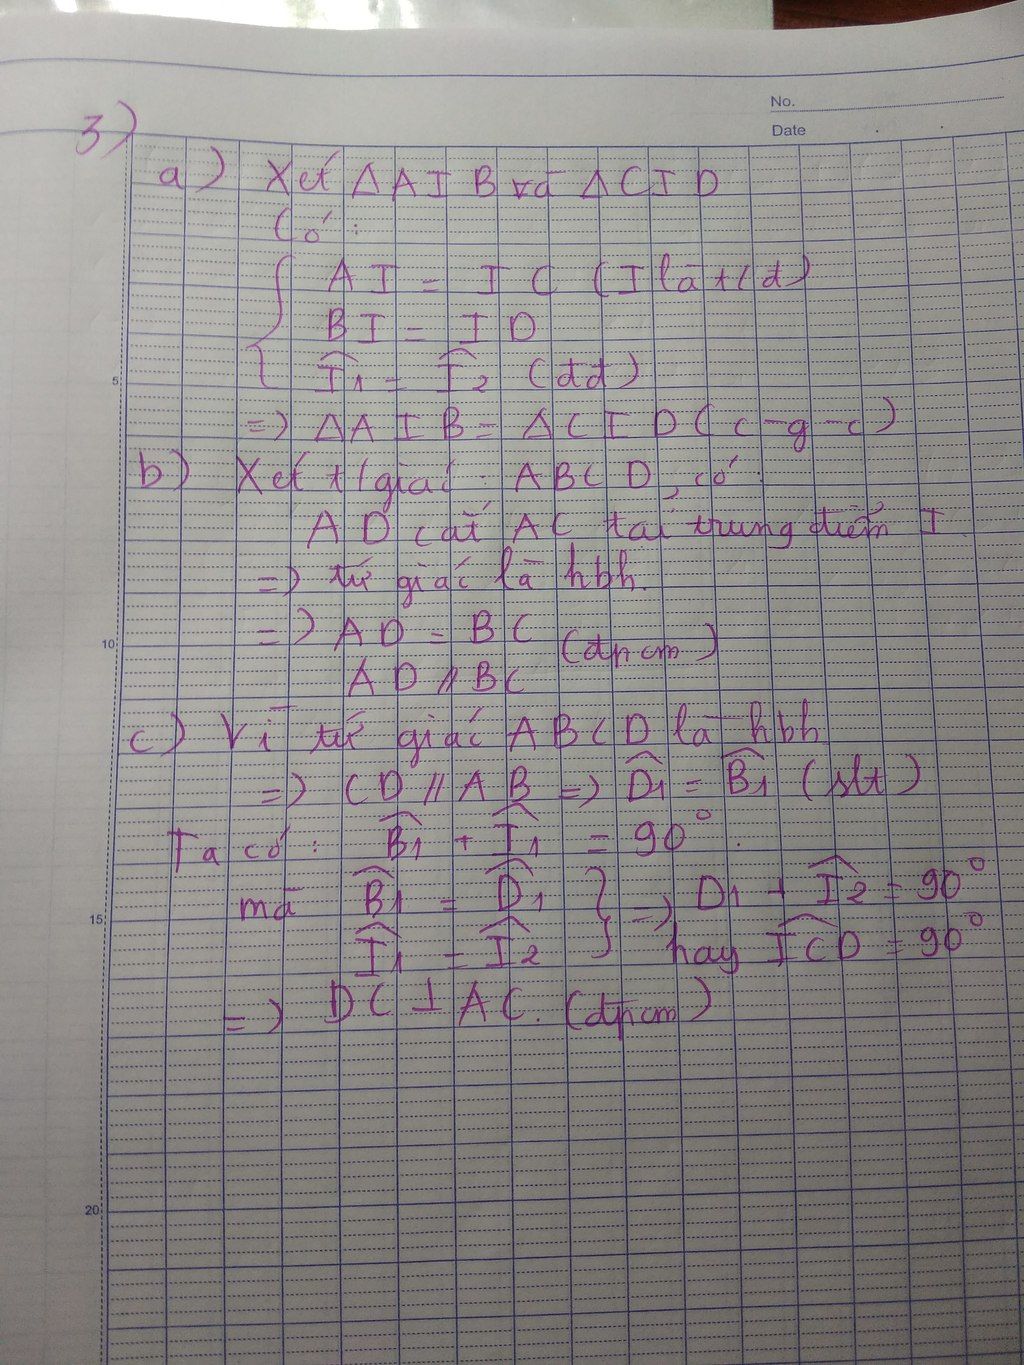 No.
Date
3)
a) Xét ΔAIB và ΔCID
Có:
AI = IC (I là t/đ)
BI = ID
5
Î1 = Î2 (đđ)
=> ΔAIB = ΔCID (c-g-c)
b) Xét t/giác ABCD, có:
AD cắt AC tại trung điểm I
=> tứ giác là hbh.
10
=> AD = BC
(đpcm)
AD // BC
c) Vì tứ giác ABCD là hbh
=> CD // AB => D̂1 = B̂1 (slt)
Ta có: B̂1 + Î1 = 90°.
15
mà B̂1 = D̂1 } => D1 + Î2 = 90°
Î1 = Î2 hay ICD̂ = 90°
=> DC ⊥ AC. (đpcm)
20